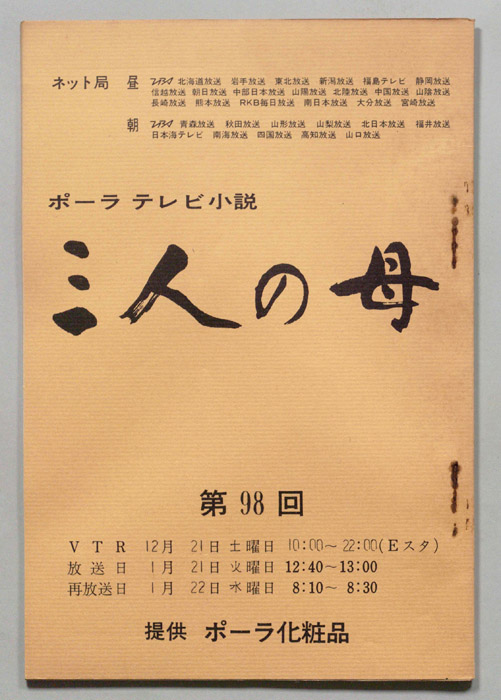 ネット局 昼 TBS 北海道放送 岩手放送 東北放送 新潟放送 福島テレビ 静岡放送
信越放送 朝日放送 中部日本放送 山陽放送 北陸放送 中国放送 山陰放送
長崎放送 熊本放送 RKB毎日放送 南日本放送 大分放送 宮崎放送
朝 TBS 青森放送 秋田放送 山形放送 山梨放送 北日本放送 福井放送
日本海テレビ 南海放送 四国放送 高知放送 山口放送
ポーラ テレビ小説
三人の母
第 98 回
VTR 12月 21日 土曜日 10:00~22:00(Eスタ)
放送日 1月 21日 火曜日 12:40~13:00
再放送日 1月 22日 水曜日 8:10~8:30
提供 ポーラ化粧品